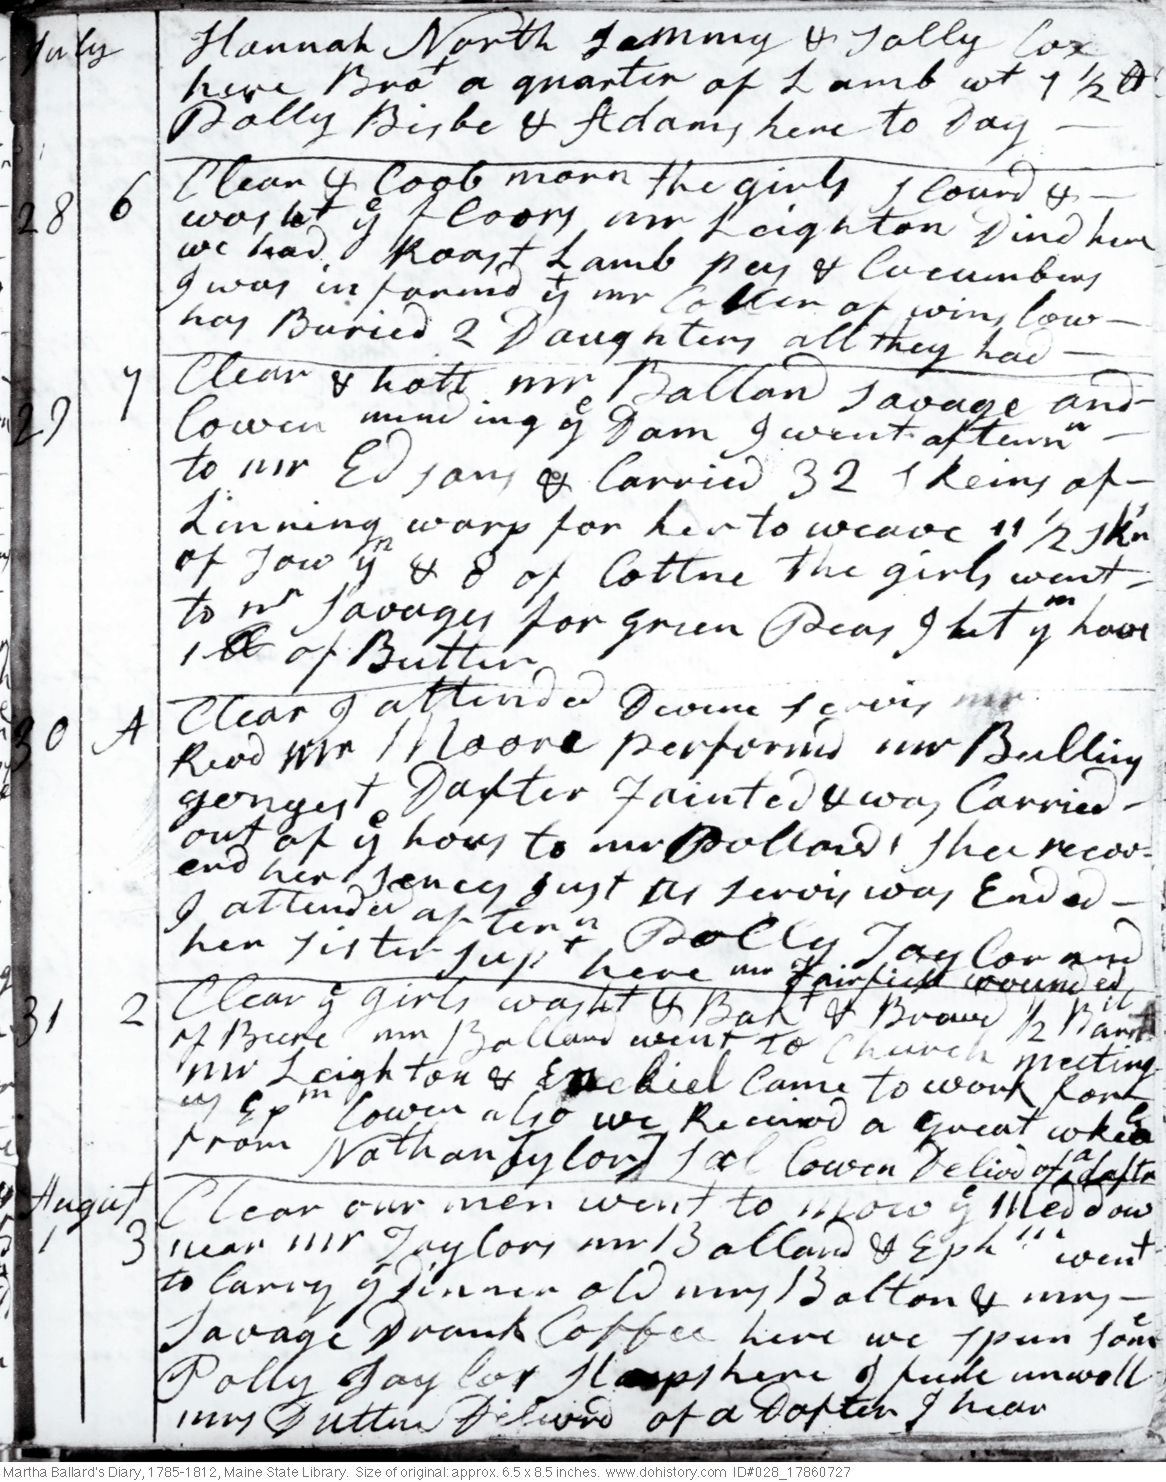 July Hannah North Sammy & Sally Cox
here Bro.t a quarter of Lamb wt 7 1/2 lb
Polly Bisbe & Adams here to Day —
Clear & Cool morn the girls Scourd & —
28 6 washt ye floors mr Leighton Dind here
we had Roast Lamb Pees & Cucumbers
I was informd yt mr Colier of winslow —
has Buried 2 Daughters all they had —
29 7 Clear & hott mr Ballard Savage and
Cowen minding ye Dam I went aftern n —
to mr Edsons & Carried 32 Skeins of —
Linning warp for her to weave 11 1/2 Skn
of Tow yn & 8 of Cottne The girls went —
to mr Savages for green Peas I let ym have
1 lb of Butter
Clear I attended Devine Servis mr
30 A Read mr Moore performd mr Bulling
gengest Dafter Fainted & was Carried —
out of ye hous to mr Pollards Shee recov-
erd her Sences just as Servis was Ended —
I attended aftern n Polly Taylor and
her Sister Supt here mr Fairfield wounded
31 2 Clear ye girls washt & Bakt & Brawd 1/2 Baril
of Bere mr Ballard went to Church meeting
mr Leighton & Ezekiel Came to work for —
us Epm Cowen also we Receivd a great wheel
from Nathan Tylors Sal Cowen Delivd of a dafter
August Clear our men went to mow ye Meddow
1 3 near mr Taylors mr Ballard & Ephm went
to Carry ye Dinner old mrs Bolton & mrs —
Savage Drank Coffee here we Spun Some
Polly Taylor Sleeps here I feele unwell
mrs Dutten Delivrd of a Dafter I hear
Martha Ballard's Diary, 1785-1812, Maine State Library. Size of original: approx. 6.5 x 8.5 inches. www.dohistory.com ID#028_17860727